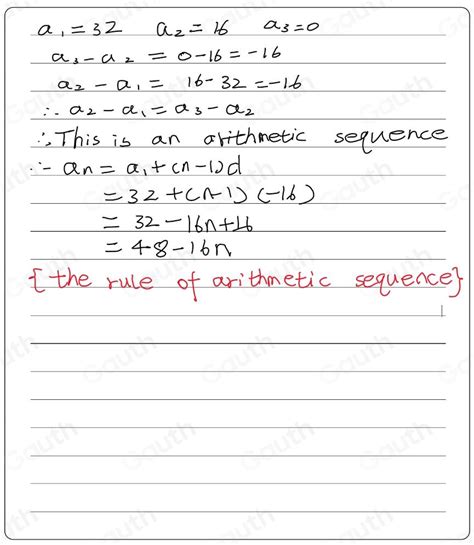 a₁=32 a₂=16 a₃=0
a₃-a₂=0-16=-16
a₂-a₁=16-32=-16
∴a₂-a₁=a₃-a₂
∴This is an arithmetic sequence
∴an=a₁+(n-1)d
=32+(n-1)(-16)
=32-16n+16
=48-16n
{the rule of arithmetic sequence}
Gauth